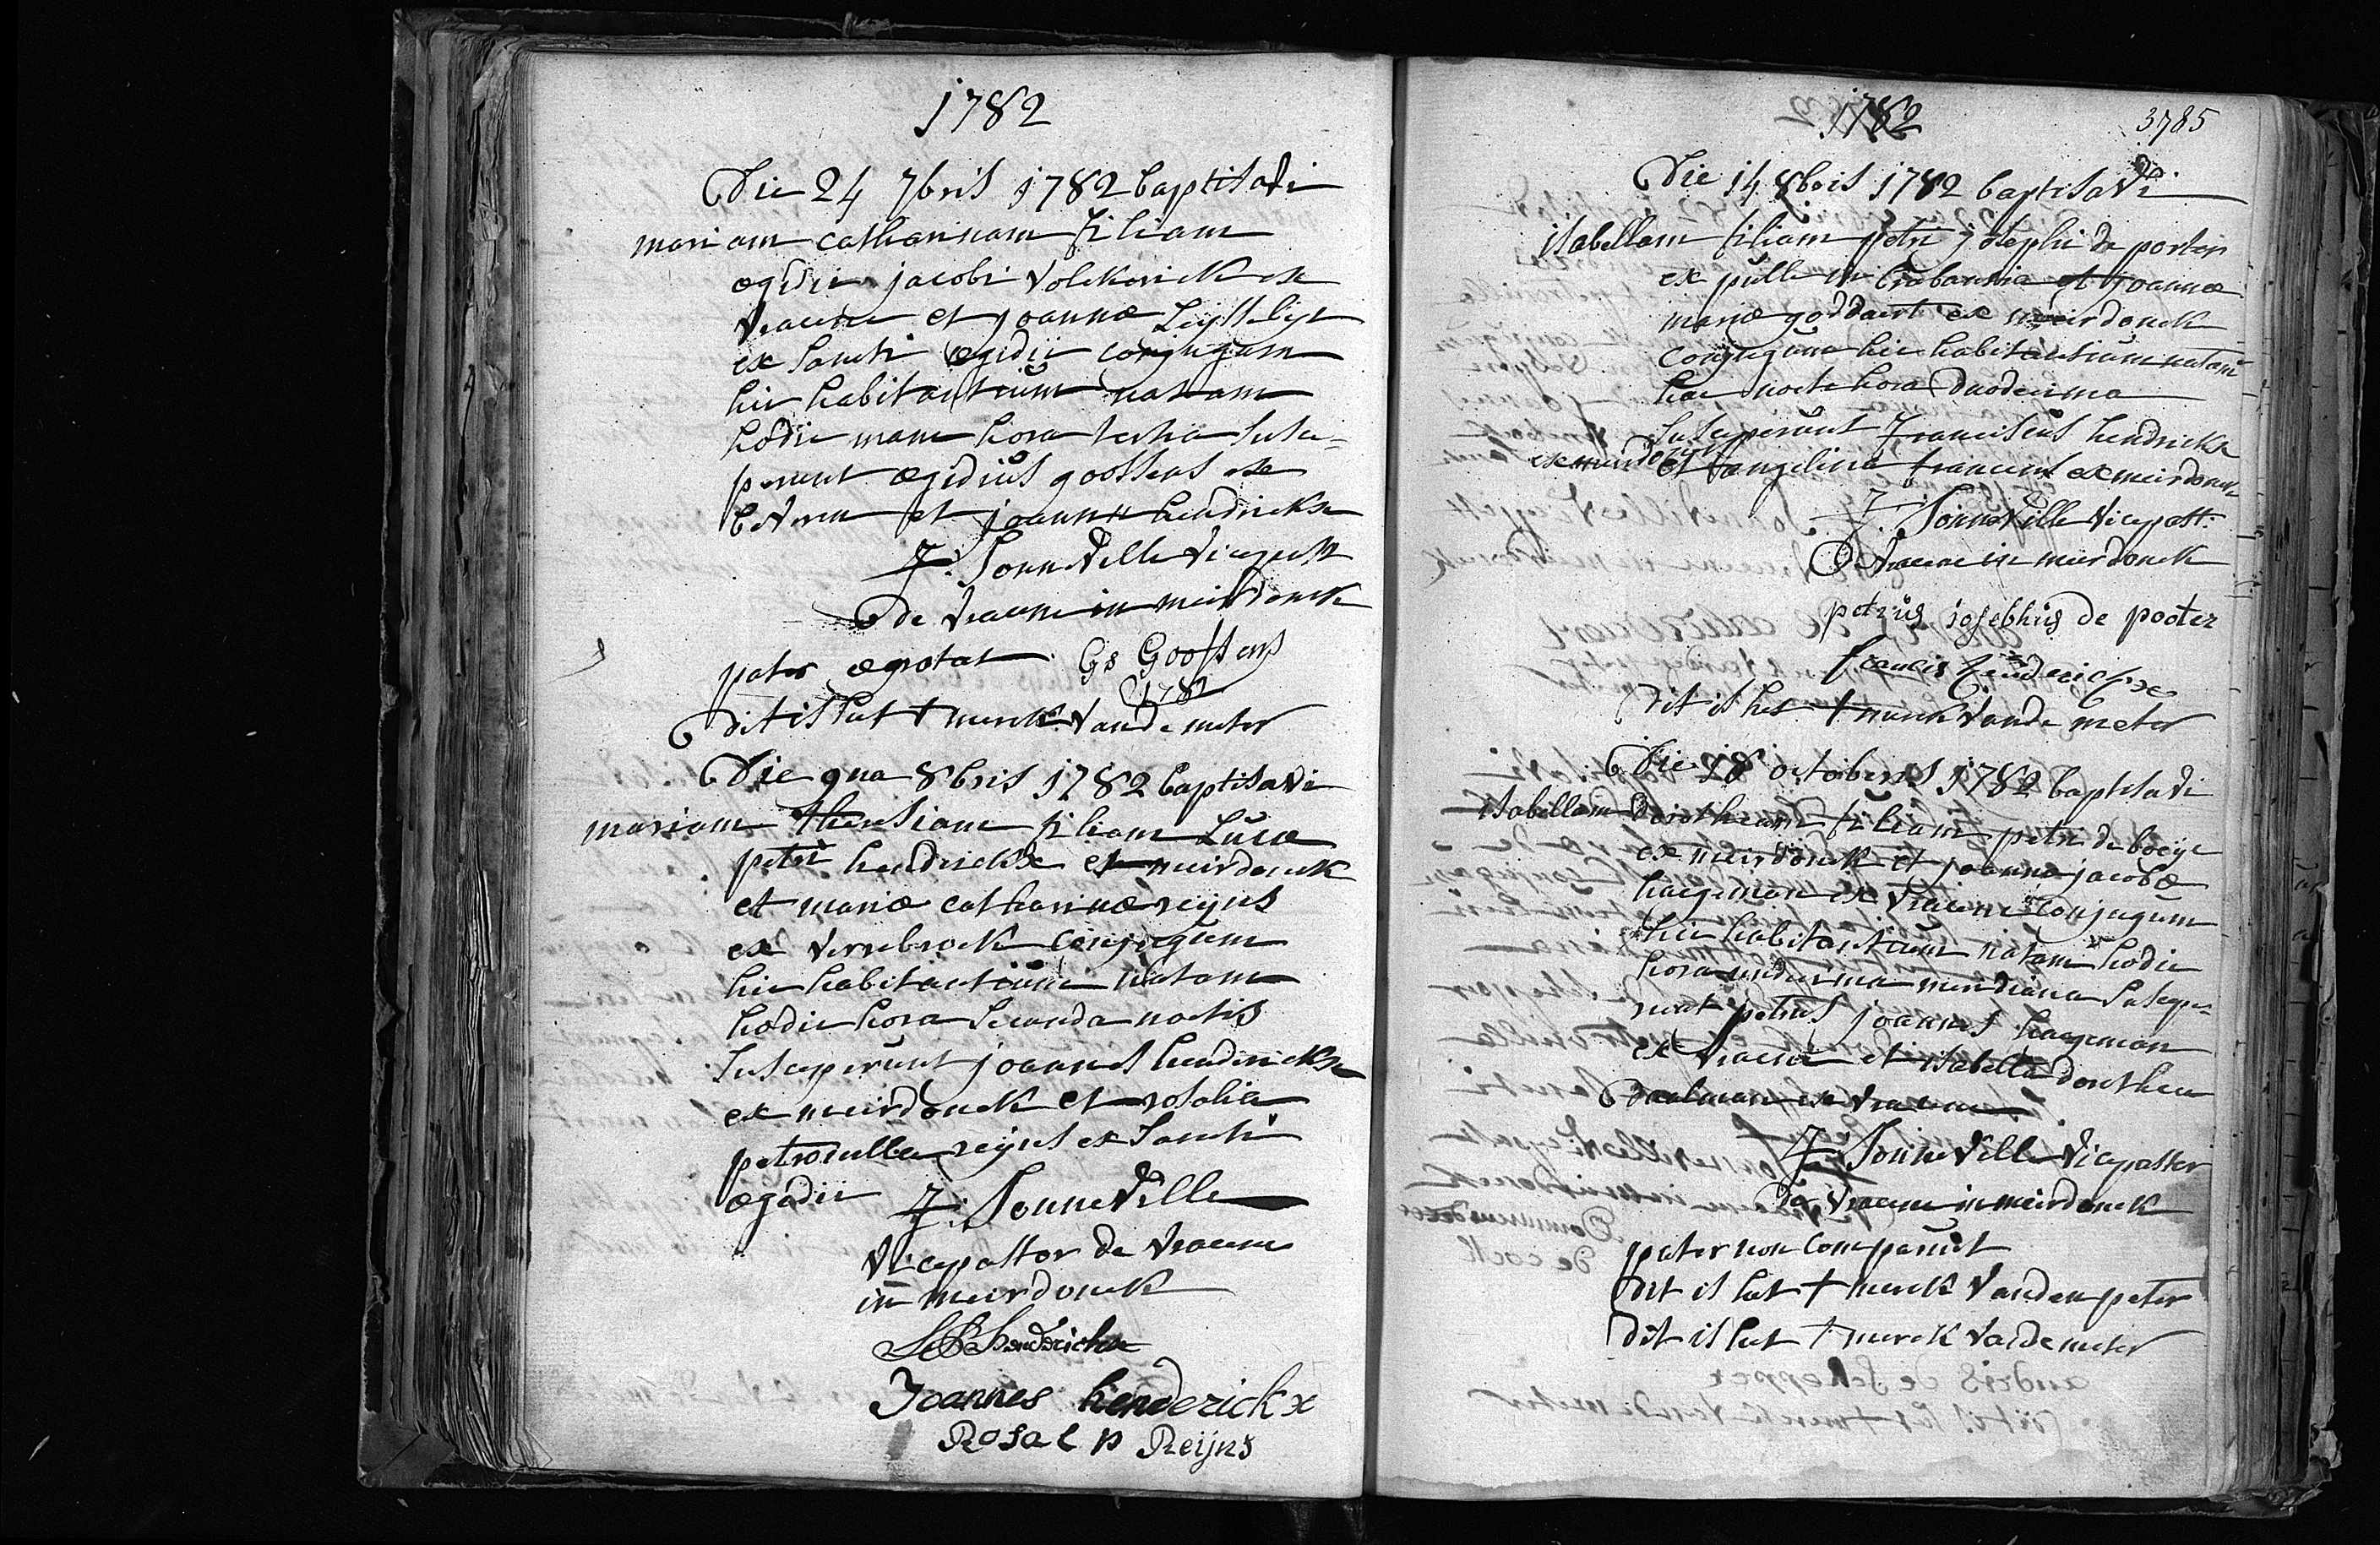 1782
Die 24 7bris 1782 baptisavi
mariam catharinam filiam
ægidii jacobi volckerick ex
vracene et joannæ
ex sancti ægidii conjugum
hic habitantium natam
hodie mane hora tertia susce=
perunt ægidius goossens ex
beveren et joanna hendrickx
J: Sonneville vicepastr
de vracene in meirdonck
pater ægrotat Gs Goossens
1782
dit is het + merck vande meter
Die 9na 8bris 1782 baptisavi
mariam theresiam filiam Lucæ
petri hendrickx ex meirdonck
et mariæ catharinæ reijns
ex verrebroek conjugum
hic habitantium natam
hodie hora secunda noctis
susceperunt joannes hendrickx
ex meirdonck et rosalia
petronella reijns ex sancti
ægidii J: Sonneville
vicepastor de vracene
in meirdonck
hendrickx
Joannes henderickx
Rosal p Reijns
1782
3785
Die 14 8bris 1782 baptisavi
isabellam filiam petri josephi de porter
ex pulle in brabantia et joannæ
mariæ goddaert ex meirdonck
conjugum hic habitantium natam
hac nocte hora duodecima
susceperunt franciscus hendrickx
ex meirdonck et angelina francens ex meirdonck
J: Sonneville vicepast:
de vracene in meirdonck
petrus josephus de pooter
francis henderickx
dit is het + merck vande meter
Die 18 octobris 1782 baptisavi
isabellam dorotheam filiam petri de boeije
ex meirdonck et joannæ jacobæ
haegeman ex vracene conjugum
hic habitantium natam hodie
hora undecima meridiana suscepe=
runt petrus joannes haegeman
ex vracene et isabella dorothea
daelman ex vracene
J: Sonneville vicepastor
de vracene in meirdonck
pater non comparuit
dit is het + merck vanden peter
dit is het + merck vande meter